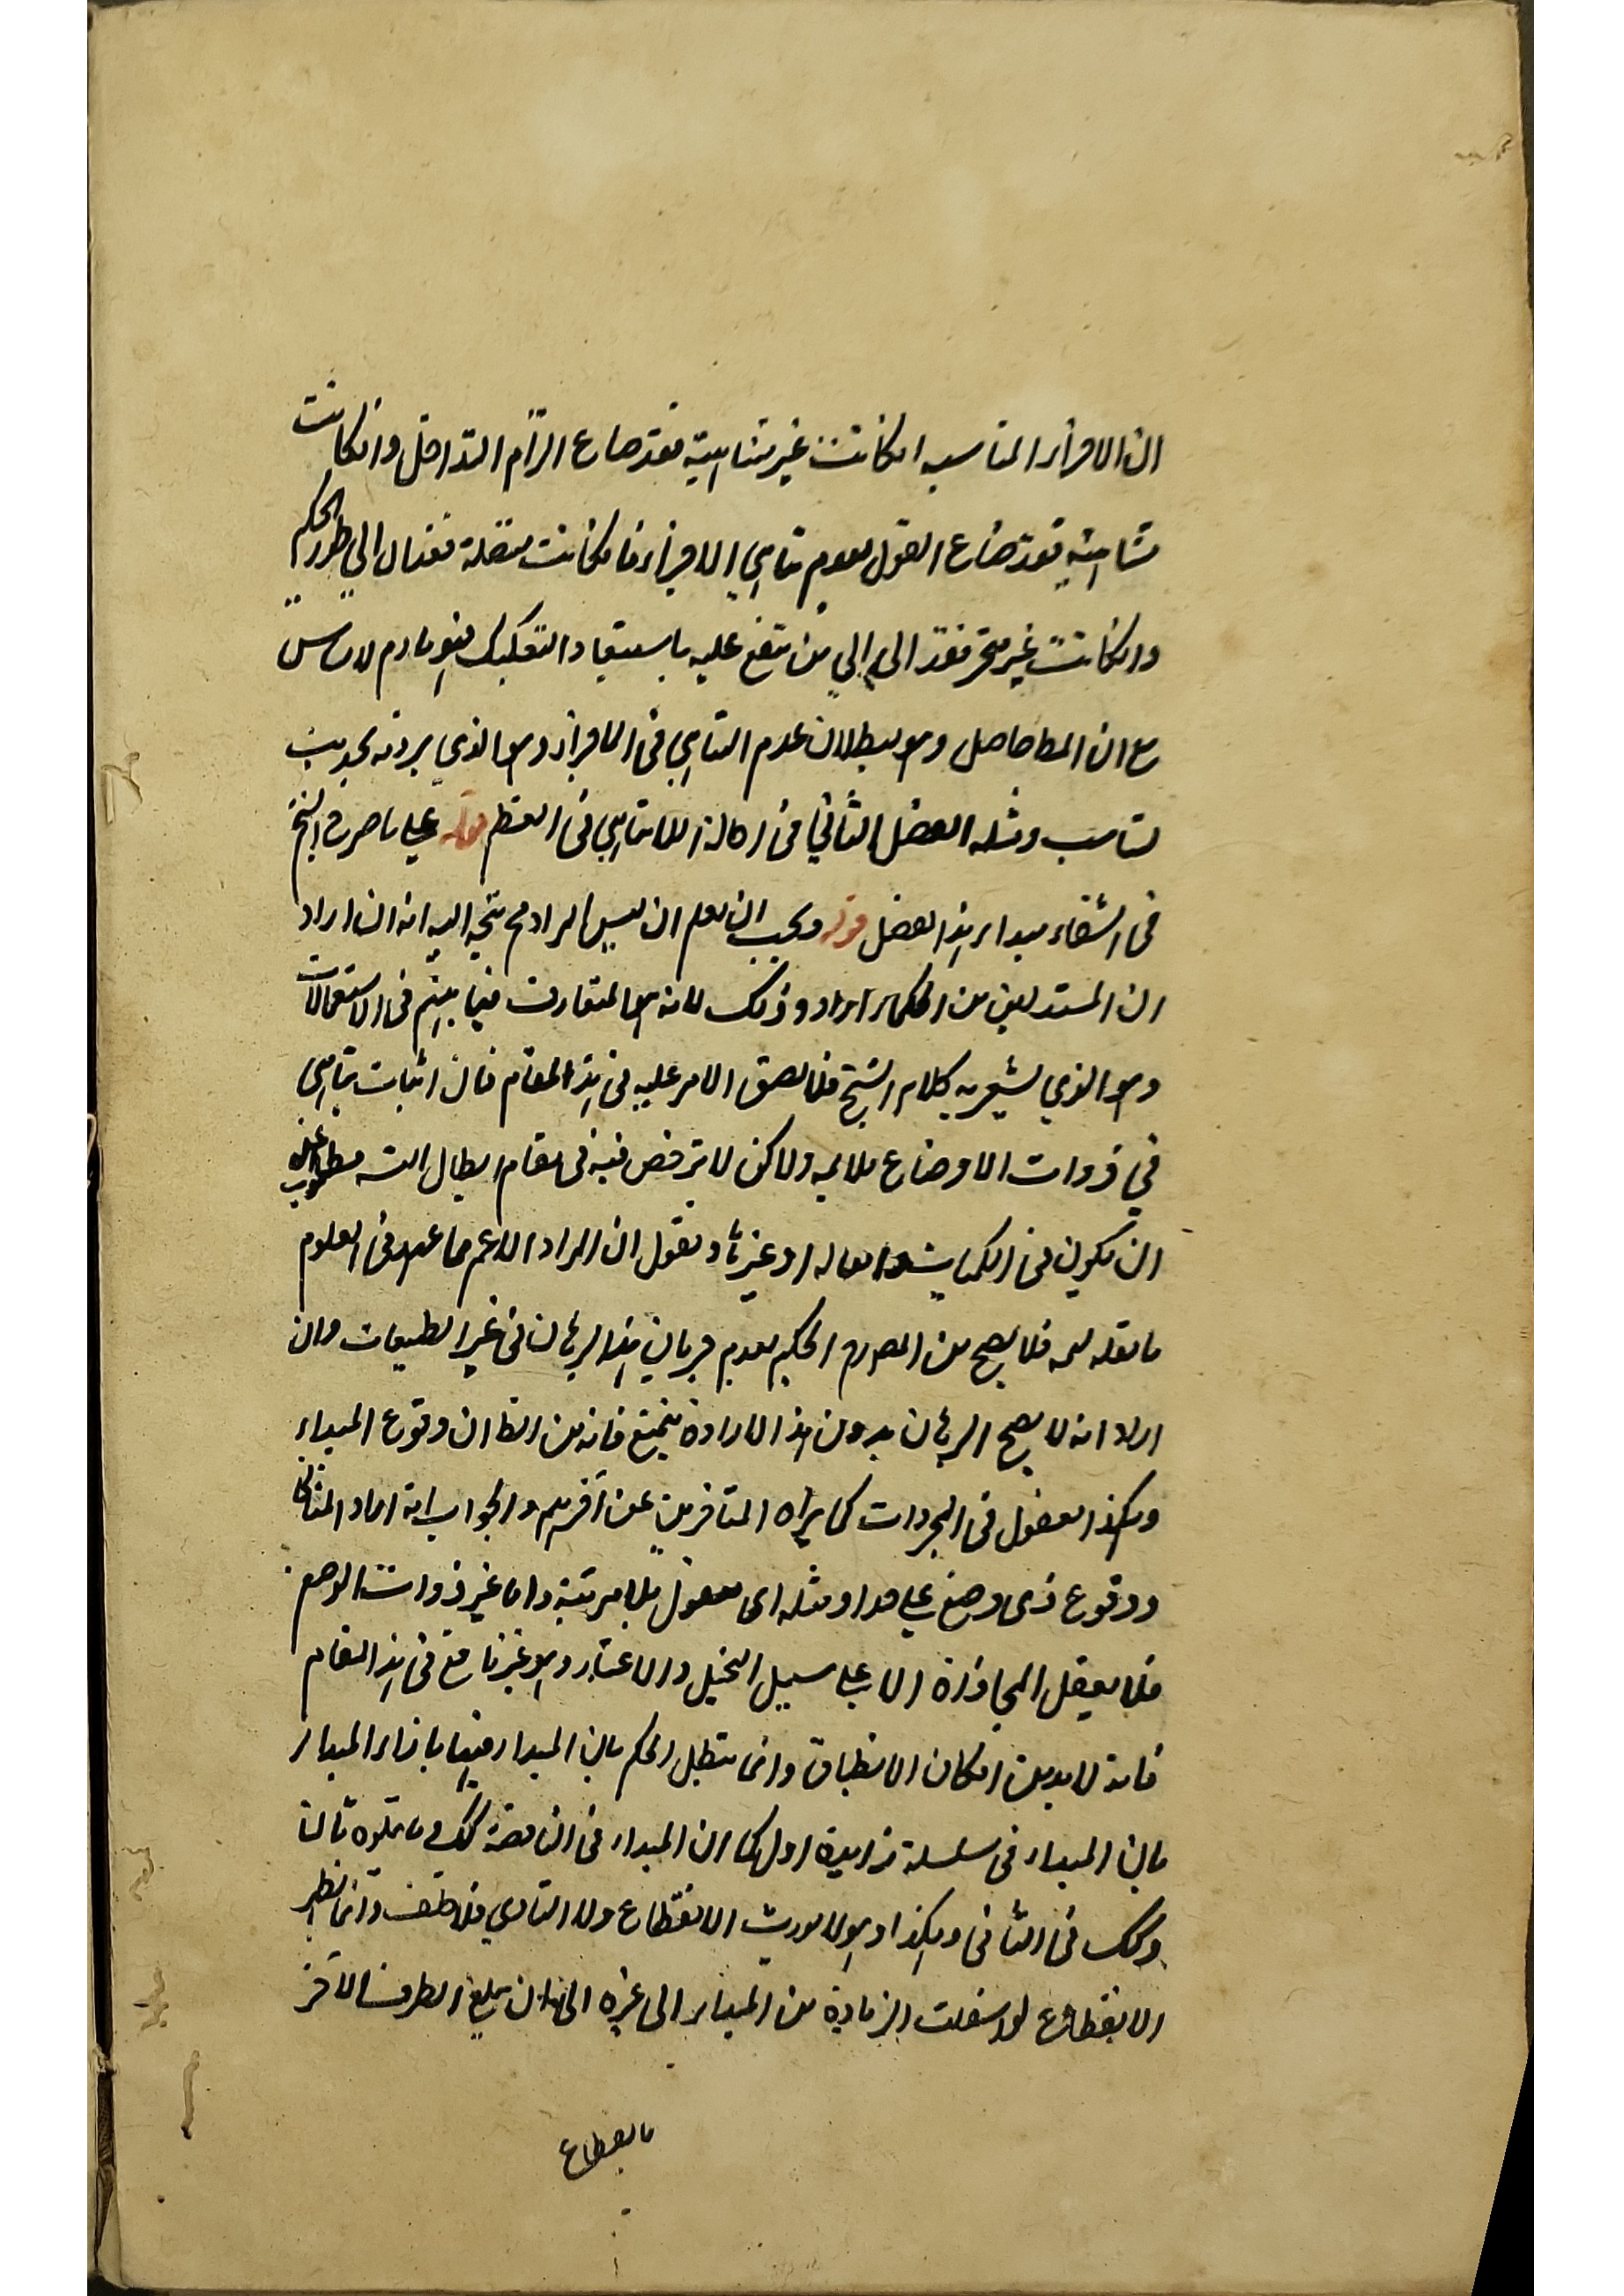 ان الافراز المناسبه انكانت غير متناهية فقد ضاع الزام التداخل وانكانت
متناهية فقد ضاع القول بعدم تناهي الافراز فانكانت متصلة فقد ال الى طور الحكيم
وانكانت غير متجز فقد ال الى من تقع عليه باستبعاد التفكيك فهو هادم لاساس
مع ان المط حاصل وهو بطلان عدم التناهي في الافراز وهو الذي يردنه بحديث
تناسب ومثله الفصل الثاني في احالة اللاتناهي في العظم قوله على ما صرح الشيخ
في الشفاء مبدا هذا الفصل قوله ويجب ان يعلم ان ليس المراد مح يتجه اليه انه ان اراد
ان المستدلين من الحكماء اراد وذلك لانه هو المتعارف فيما بينهم في الاستعمالات
وهو الذي يشعر به كلام الشيخ فلا يصق الامر عليه في هذا المقام فان اثبات تناهي
في ذوات الاوضاع ولاكن لا يترخص فيه في مقام ابطال الت مط
ان يكون في الكميات او غيرها و نقول ان المراد الاعم مما في العلوم
ما فلا يصح من الحكيم بعدم جريان هذا البرهان في غير الطبيعيات وان
اراد انه لا يصح البرهان بدون هذا الارادة يمتنع فانه من الظ ان وقوع المبداء
وهكذا يعقل في المجردات كما يراه المتاخرين عن آخرهم والجواب انه اراد
ووقوع ذى وضع على هذا ومثله اى معقول بلا مرتبة واما غير ذوات الوضع
فلا يعقل المحاذاة الا على سبيل التخيل والاعتبار وهو غير نافع في هذا المقام
فانه لا بد من امكان الانطباق وانما يتطبل الحكم بان المبداء فيها بازاء المبداء
بان المبداء في سلسلة زايدة اول كما ان المبداء في الناقصة كك و ما يتلوه ثالثا
وكك في الثاني وهكذا وهو لا يورث الانقطاع ولا التساوي فلا خلف وانما يظهر
الانقطاع لو انتقلت الزيادة من المبداء الى غيره الى ان يبلغ الطرف الآخر
بانقطاع